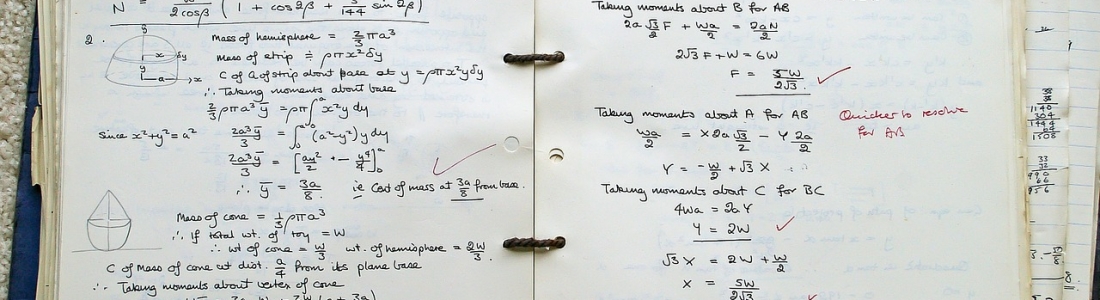 N = 2cosβ ( 1 + cos2β + 3/144 sin2β )
2.
Mass of hemisphere = 2/3 πa³
mass of strip ≑ ρπx²δy
C of G of strip about base at y = ρπx²yδy
∴ Taking moments about base
2/3 ρπa³ȳ = ρπ∫₀ᵃ x²y dy
Since x²+y²=a² 2a³ȳ/3 = ∫₀ᵃ (a²-y²)y dy
2a³ȳ/3 = [ay²/2 - y⁴/4]₀ᵃ
∴ ȳ = 3a/8 ie C of mass at 3a/8 from base.
Mass of cone = 1/3 ρπa³
∴ If total wt. of toy = W
∴ wt of cone = W/3 wt. of hemisphere = 2W/3
C of Mass of cone at dist. a/4 from its plane base
∴ Taking moments about vertex of cone
Taking moments about B for AB
2a√3/2 F + Wa/2 = 2aN/2
2√3F + W = 6W
F = 5W/2√3
Taking moments about A for AB
Quicker to resolve
for AB
Wa/2 = X2a√3/2 - Y 2a/2
Y = -W/2 + √3 X
Taking moments about C for BC
4Wa = 2aY
Y = 2W
√3 X = 2W + W/2
X = 5W/2√3
38
38
1140
304
1444
64
1508
33
32
990
66
956